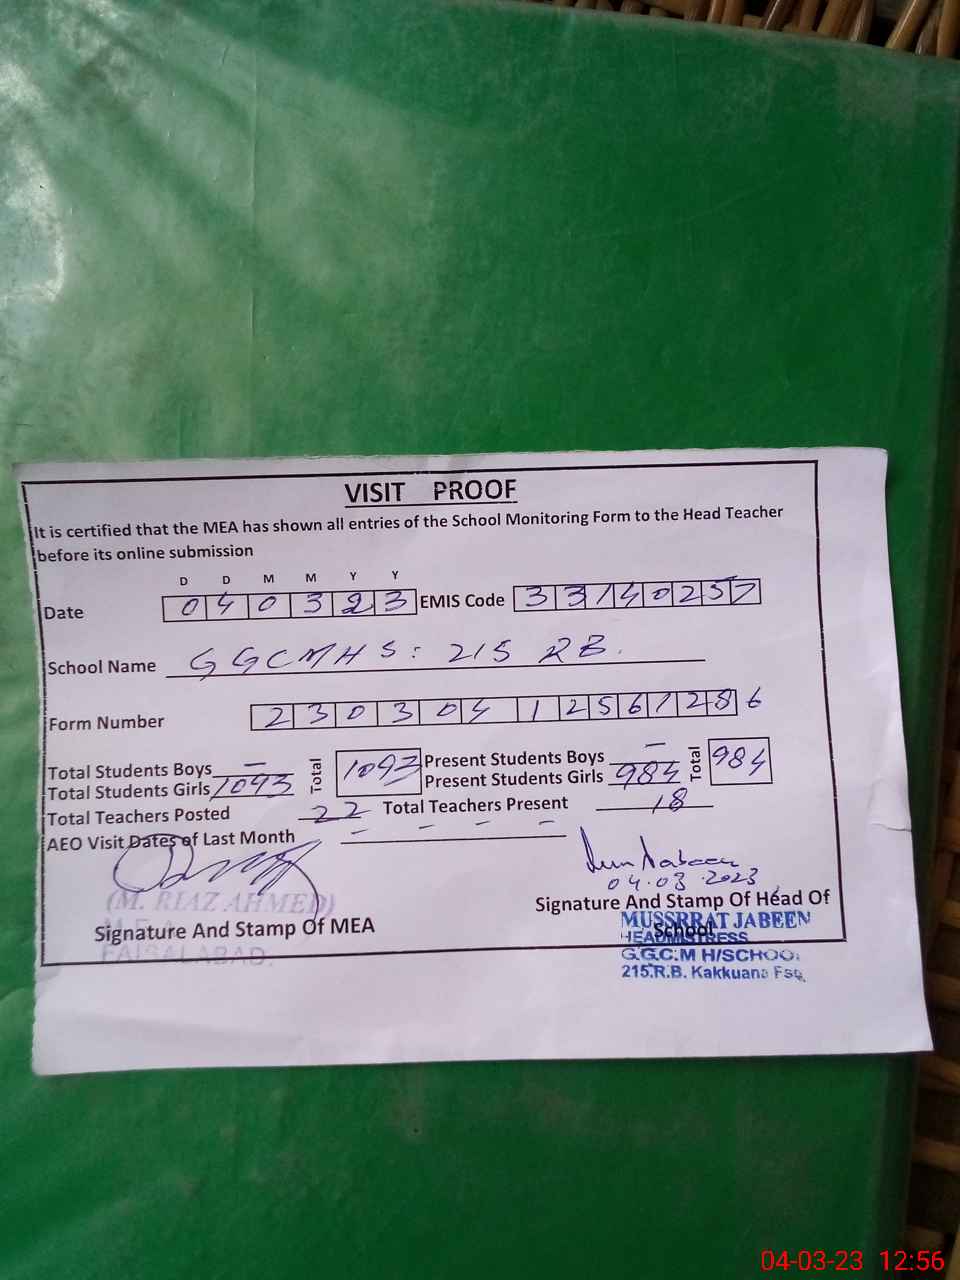 VISIT PROOF
It is certified that the MEA has shown all entries of the School Monitoring Form to the Head Teacher
before its online submission
D D M M Y Y
Date 0 4 0 3 2 3 EMIS Code 3 3 1 4 0 2 5 7
School Name GGCMHS: 215 RB.
Form Number 2 3 0 3 0 4 1 2 5 6 1 2 8 6
Total Students Boys — Total 1093 Present Students Boys — Total 984
Total Students Girls 1093 Present Students Girls 984
Total Teachers Posted 22 Total Teachers Present 18
AEO Visit Dates of Last Month – – – –
04.03.2023
(M. RIAZ AHMED)
Signature And Stamp Of MEA
FAISALABAD.
Signature And Stamp Of Head Of
School
MUSSRRAT JABEEN
HEADMISTRESS
G.G.C.M H/SCHOOL
215.R.B. Kakkuana Fsd.
04-03-23 12:56